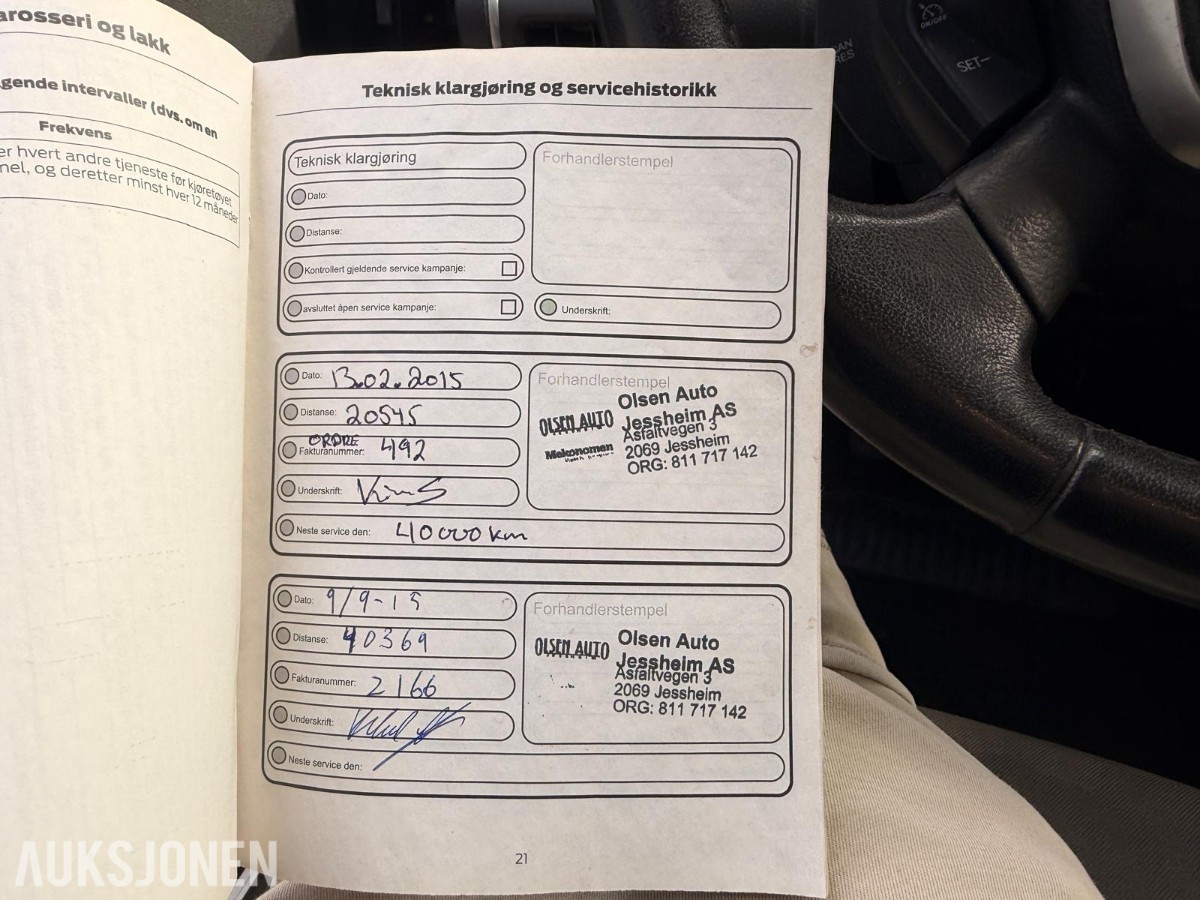 arosseri og lakk
gende intervaller (dvs. om en
Frekvens
er hvert andre tjeneste før kjøretøyet
nel, og deretter minst hver 12 måneder
Teknisk klargjøring og servicehistorikk
Teknisk klargjøring
Forhandlerstempel
Dato:
Distanse:
Kontrollert gjeldende service kampanje:
avsluttet åpen service kampanje:
Underskrift:
Dato: 13.02.2015
Distanse: 20545
ORDRE
Fakturanummer: 492
Underskrift:
Neste service den: 40000 km
Forhandlerstempel
OLSEN AUTO
Mekonomen
Olsen Auto
Jessheim AS
Asfaltvegen 3
2069 Jessheim
ORG: 811 717 142
Dato: 9/9-15
Distanse: 40369
Fakturanummer: 2166
Underskrift:
Neste service den:
Forhandlerstempel
OLSEN AUTO
Olsen Auto
Jessheim AS
Asfaltvegen 3
2069 Jessheim
ORG: 811 717 142
21
ON/OFF
SET–
AUKSJONEN